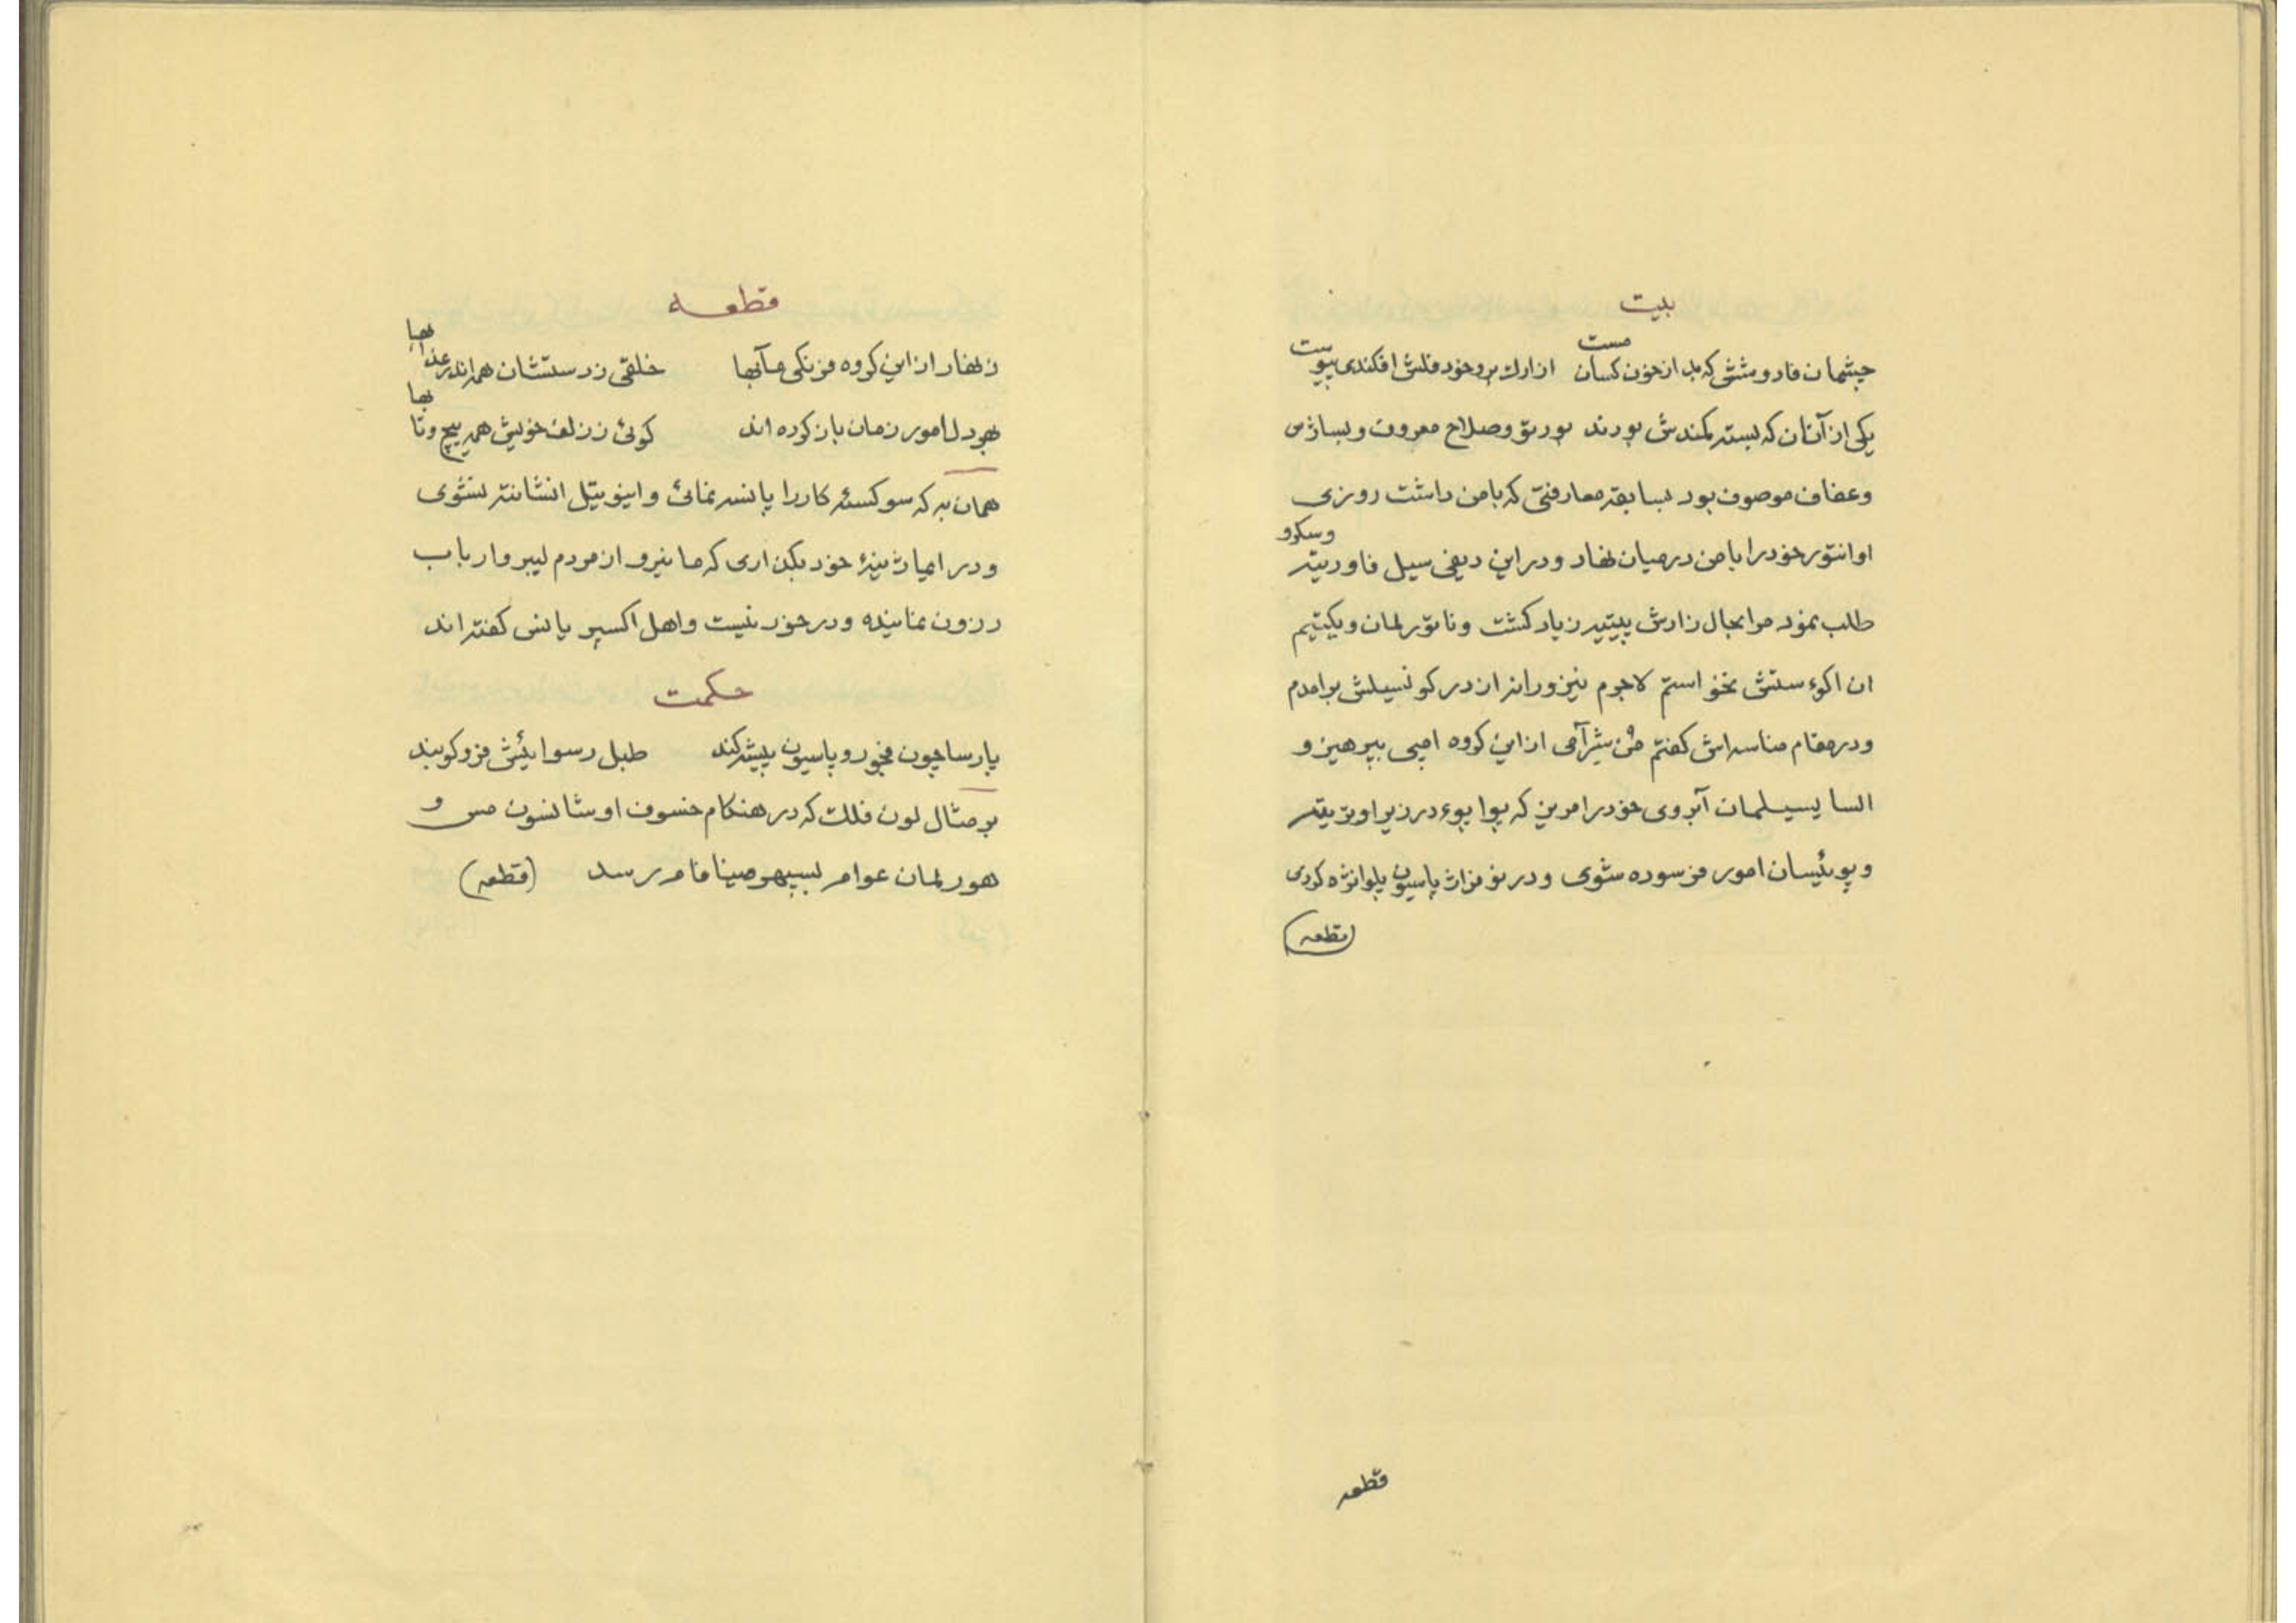 بیت
چشمان فادومشتی که بد از خون کسان مست از ارك برو خود فلش افکندی بپوست
یکی از آنان که بسته کمندش بودند بورتو وصلاح معروف و بساژس
وعفاف موصوف بود بسابقه معارفتی که با من داشت روزی
اوانتور خود را با من در میان نهاد و در این دیفی سیل فاورتیه وسکرو
طلب نمود مرا بحال زارش پیتیه زیاد گشت وناتورلمان ویکتیم
ان اکوء ستش نخواستم لاجرم نیز ورا از در کونسیلش برامدم
ودر مقام مناسه اش گفتم من شر آمی از این کروه امپی بپرهیز و
السا یسیلمان آبروی خود را مریز که بوا بوء در زیر او تریته
و پوئیسان امور فرسوده شوی و در نوفراژ پاسیون پلوانژه کردی
(قطعه)
قطعه
قطعه
زنهار از این کروه فرنکی مآبها خلقی ز دستشان همه اندر عذابها
بهر دل امور زمان باز کرده اند کوئی ز زلف خویش همه پیچ و تابها
همان به که سو کسته کار را پانسه نمائی و اینوتیل انشانته نشوی
و در امیاژینهٔ خود بکذاری که ما نیرو از مردم لیبر و ارباب
رزون نمانیده و در خور نیست و اهل اکسپر یانس کفته اند
حکمت
پارسا چون فجور و پاسیون پیشه کند طبل رسوائیش فرو کوبند
بر مثال لون فلك که در هنکام خسوف او شانسون مس و
هورلمان عوام بسپهر مینا فام رسد (قطعه)